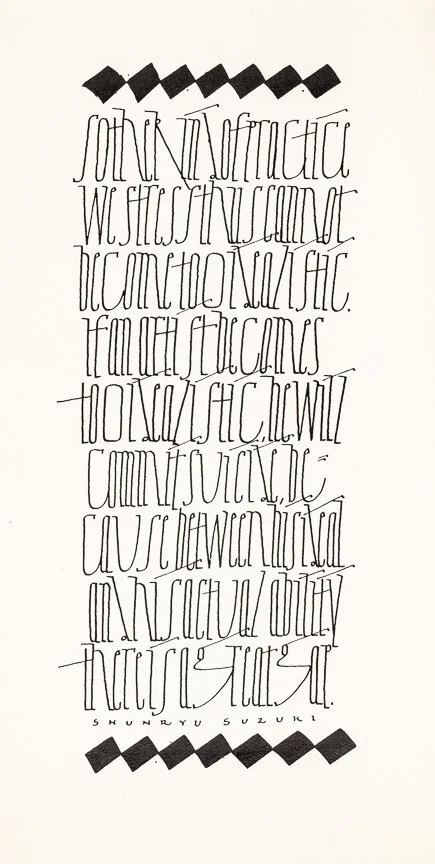 so the kind of practice
we stress thus cannot
become too idealistic.
If an artist becomes
too idealistic, he will
commit suicide, be=
cause between his ideal
and his actual ability
there is a great gap.
SHUNRYU SUZUKI